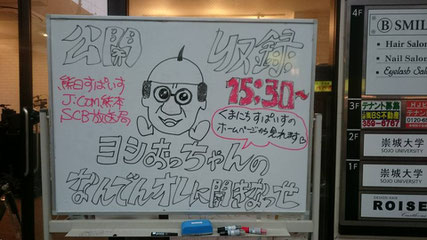 公開 収録
15:30〜
熊日すぱいす
J:COM熊本
SCB放送局
くまにちすぱいすの
ホームページから見れます
ヨシあっちゃんの
なんでんオレに聞きなっせ
4F
B SMIL
Hair Salon
Nail Salon
Eyelash Salon
3F
テナント募集
㈱BS不動産
359-6767
2F
崇城大学
SOJO UNIVERSITY
1F
崇城大学
SOJO UNIVERSITY
ROISE